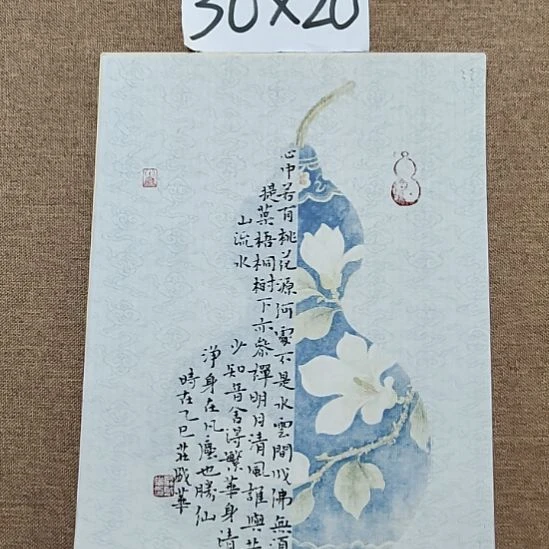 30×20
心中若有桃花源何處不是水雲間成佛無須
提葉梧桐樹下亦參禪明月清風誰與共
山流水少知音舍得繁華身清
淨身在凡塵也勝仙
時在乙巳莊成華